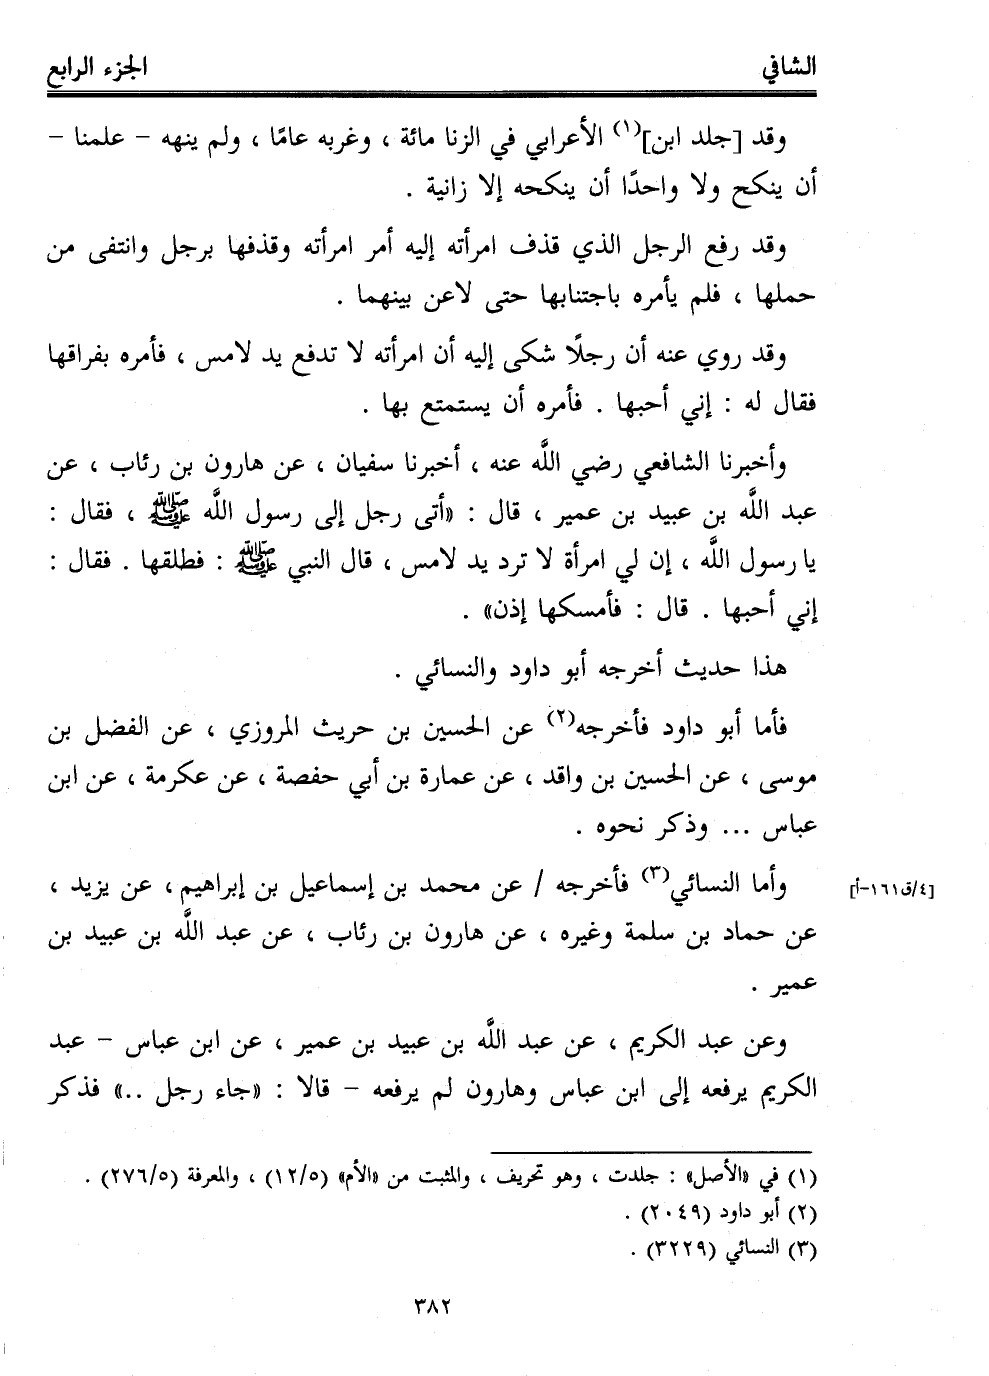 الشافي
الجزء الرابع
وقد [جلد ابن](١) الأعرابي في الزنا مائة ، وغربه عامًا ، ولم ينهه – علمنا –
أن ينكح ولا واحدًا أن ينكحه إلا زانية .
وقد رفع الرجل الذي قذف امرأته إليه أمر امرأته وقذفها برجل وانتفى من
حملها ، فلم يأمره باجتنابها حتى لاعن بينهما .
وقد روي عنه أن رجلًا شكى إليه أن امرأته لا تدفع يد لامس ، فأمره بفراقها
فقال له : إني أحبها . فأمره أن يستمتع بها .
وأخبرنا الشافعي رضي اللَّه عنه ، أخبرنا سفيان ، عن هارون بن رئاب ، عن
عبد اللَّه بن عبيد بن عمير ، قال : «أتى رجل إلى رسول اللَّه ﷺ ، فقال :
يا رسول اللَّه ، إن لي امرأة لا ترد يد لامس ، قال النبي ﷺ : فطلقها . فقال :
إني أحبها . قال : فأمسكها إذن» .
هذا حديث أخرجه أبو داود والنسائي .
فأما أبو داود فأخرجه(٢) عن الحسين بن حريث المروزي ، عن الفضل بن
موسى ، عن الحسين بن واقد ، عن عمارة بن أبي حفصة ، عن عكرمة ، عن ابن
عباس ... وذكر نحوه .
وأما النسائي(٣) فأخرجه / عن محمد بن إسماعيل بن إبراهيم ، عن يزيد ،
[٤/ق١٦١-أ]
عن حماد بن سلمة وغيره ، عن هارون بن رئاب ، عن عبد اللَّه بن عبيد بن
عمير .
وعن عبد الكريم ، عن عبد اللَّه بن عبيد بن عمير ، عن ابن عباس – عبد
الكريم يرفعه إلى ابن عباس وهارون لم يرفعه – قالا : «جاء رجل ..» فذكر
(١) في «الأصل» : جلدت ، وهو تحريف ، والمثبت من «الأم» (١٢/٥) ، والمعرفة (٢٧٦/٥) .
(٢) أبو داود (٢٠٤٩) .
(٣) النسائي (٣٢٢٩) .
٣٨٢